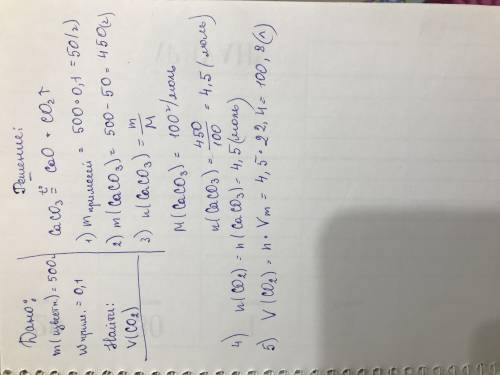 Дано:
m(извести) = 500г
w прим. = 0,1
Найти:
V(CO₂)
Решение:
CaCO₃ =t° CaO + CO₂↑
1) m примесей = 500 · 0,1 = 50(г)
2) m(CaCO₃) = 500 - 50 = 450(г)
3) n(CaCO₃) = m/M
M(CaCO₃) = 100 г/моль
n(CaCO₃) = 450/100 = 4,5(моль)
4) n(CO₂) = n(CaCO₃) = 4,5(моль)
5) V(CO₂) = n · Vm = 4,5 · 22,4 = 100,8(л)